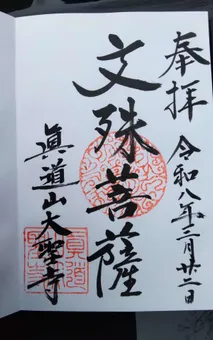 奉拝
令和八年二月廿二日
文殊菩薩
眞道山大聖寺